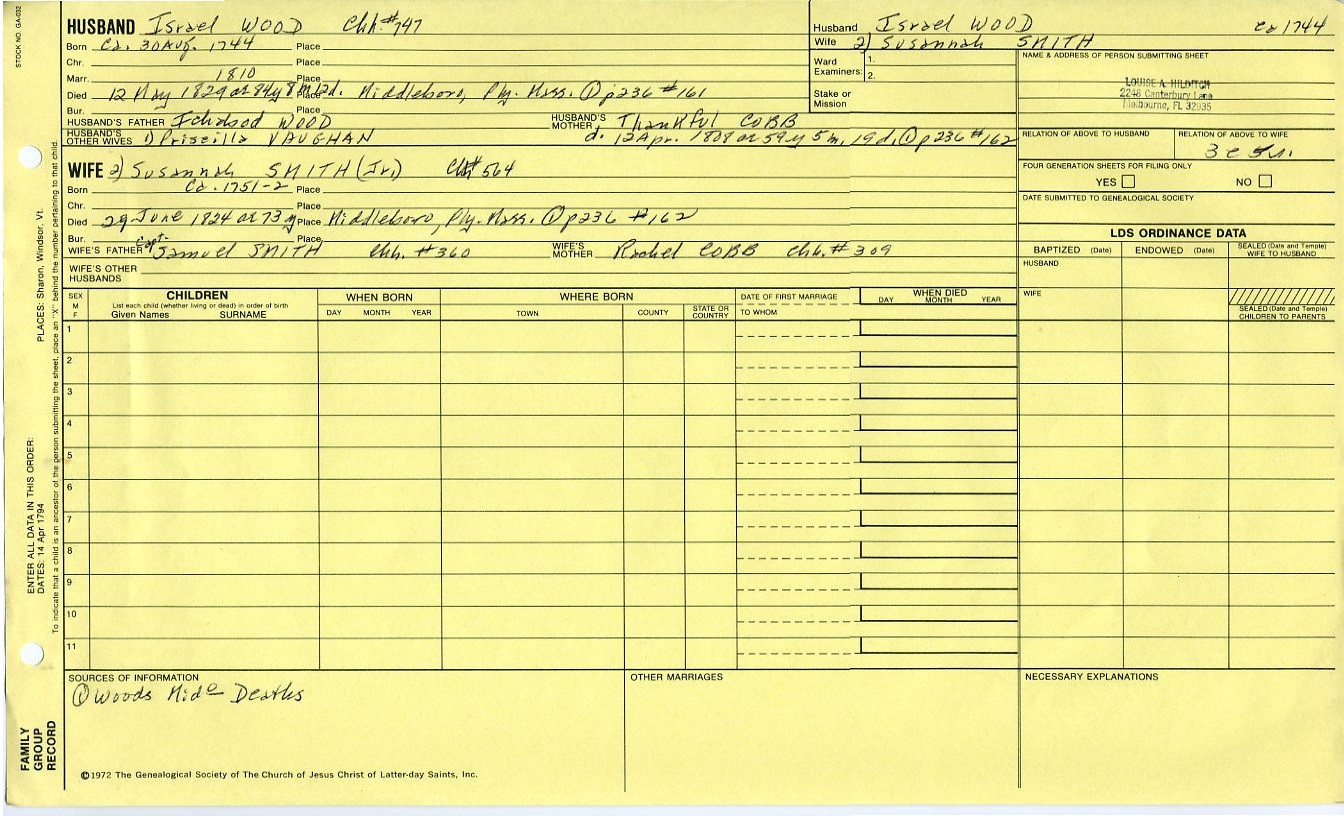 STOCK NO. GA-032
HUSBAND Israel WOOD Chh. #747
Born Ca. 30 Aug. 1744 Place
Chr. Place
Marr. 1810 Place
Died 12 May 1829 at 84y 8m 12d. Place Middleboro, Ply. Mass. ① p236 #161
Bur. Place
HUSBAND'S FATHER Ichabod WOOD HUSBAND'S MOTHER Thankful COBB
HUSBAND'S OTHER WIVES 1) Priscilla VAUGHAN d. 12 Apr. 1808 at 59y 5m, 19d. ① p236 #162
WIFE 2) Susannah SMITH (Jr.) Chh# 564
Born Ca. 1751-2 Place
Chr. Place
Died 29 June 1824 at 73y Place Middleboro, Ply. Mass. ① p236 #162
Bur. Place
WIFE'S FATHER Capt. Samuel SMITH Chh. #360 WIFE'S MOTHER Rachel COBB Chh. #309
WIFE'S OTHER HUSBANDS
Husband Israel WOOD Ca 1744
Wife 2) Susannah SMITH
Ward Examiners: 1.
2.
Stake or Mission
NAME & ADDRESS OF PERSON SUBMITTING SHEET
LOUISE A. HILDITCH
2248 Canterbury Lane
Melbourne, FL 32935
RELATION OF ABOVE TO HUSBAND RELATION OF ABOVE TO WIFE
FOUR GENERATION SHEETS FOR FILING ONLY
YES NO
DATE SUBMITTED TO GENEALOGICAL SOCIETY
LDS ORDINANCE DATA
BAPTIZED (Date) ENDOWED (Date) SEALED (Date and Temple) WIFE TO HUSBAND
HUSBAND
WIFE
SEALED (Date and Temple) CHILDREN TO PARENTS
SEX M F
CHILDREN
List each child (whether living or dead) in order of birth
Given Names SURNAME
WHEN BORN
DAY MONTH YEAR
WHERE BORN
TOWN COUNTY STATE OR COUNTRY
DATE OF FIRST MARRIAGE
TO WHOM
WHEN DIED
DAY MONTH YEAR
1
2
3
4
5
6
7
8
9
10
11
SOURCES OF INFORMATION
① Woods Mido Deaths
OTHER MARRIAGES
NECESSARY EXPLANATIONS
©1972 The Genealogical Society of The Church of Jesus Christ of Latter-day Saints, Inc.
FAMILY GROUP RECORD
ENTER ALL DATA IN THIS ORDER:
DATES: 14 Apr 1794
PLACES: Sharon, Windsor, Vt.
To indicate that a child is an ancestor of the person submitting the sheet, place an "X" behind the number pertaining to that child.